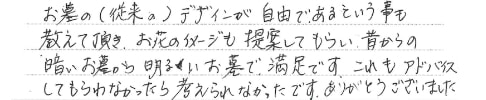 お墓の(従来の)デザインが自由であるという事も
教えて頂き、お花のイメージも提案してもらい、昔からの
暗いお墓から明るいお墓で、満足です。これもアドバイス
してもらわなかったら考えられなかったです。ありがとうございました